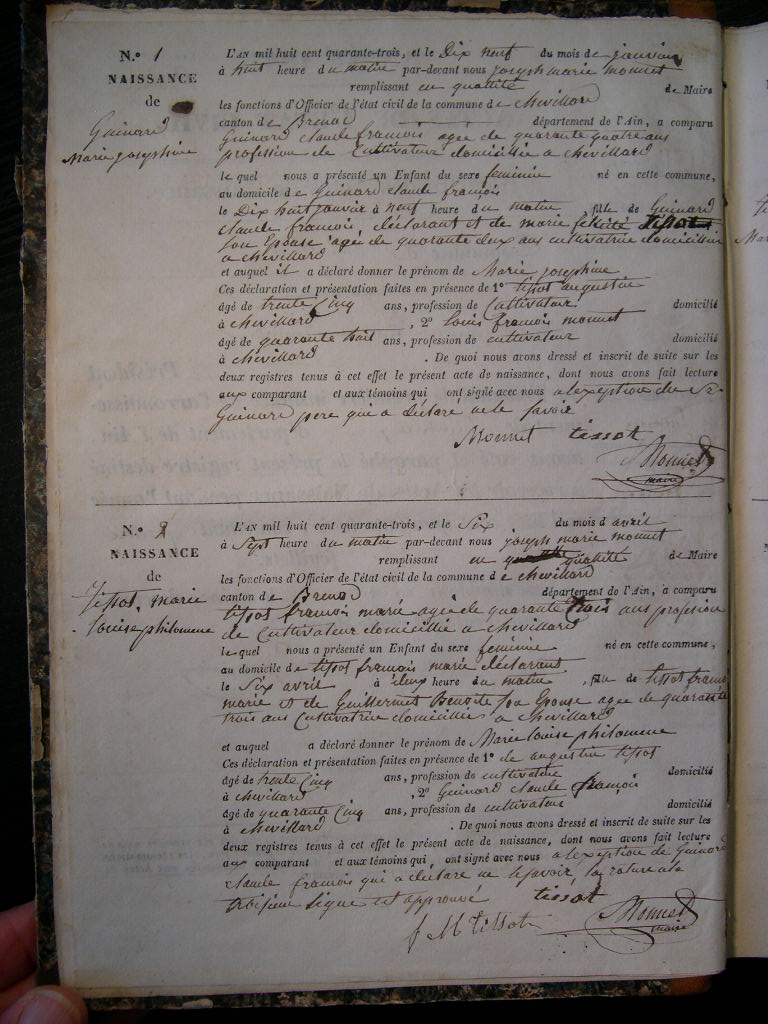 N.º 1
NAISSANCE
de
Guinard
Marie josephine
L'AN mil huit cent quarante-trois, et le Dix neuf du mois de janvier
à huit heure du matin par-devant nous joseph marie monnet
remplissant en quattité de Maire
les fonctions d'Officier de l'état civil de la commune de chevillard
canton de Brenod département de l'Ain, a comparu
Guinard claude francois agée de quarante quatre ans
profession de Cultivateur domicillié a chevillard
le quel nous a présenté un Enfant du sexe feminin né en cette commune,
au domicile de Guinard claude françois
le Dix huit janvier à neuf heure du matin, fille de Guinard
claude francois, déclarant et de marie félicité tissot
son Epouse agée de quarante deux ans cultivatrice domicilliée
a chevillard
et auquel il a déclaré donner le prénom de Marie josephine
Ces déclaration et présentation faites en présence de 1º tissot augustin
âgé de trente Cinq ans, profession de Cultivateur domicilié
à chevillard, 2º louis francois monnet
âgé de quarante huit ans, profession de cultivateur domicilié
à chevillard. De quoi nous avons dressé et inscrit de suite sur les
deux registres tenus à cet effet le présent acte de naissance, dont nous avons fait lecture
aux comparant et aux témoins qui ont signé avec nous a lexeption du Sr
Guinard pere qui a déclaré ne le savoir
Monnet tissot
Monnet
maire
N.º 2
NAISSANCE
de
Tissot, marie
louise philomene
L'AN mil huit cent quarante-trois, et le Six du mois d avril
à Sept heure du matin par-devant nous joseph marie monnet
remplissant en quattité de Maire
les fonctions d'Officier de l'état civil de la commune de chevillard
canton de Brenod département de l'Ain, a comparu
tissot francois marie agée de quarante trois ans profession
de Cultivateur domicillié a chevillard
le quel nous a présenté un Enfant du sexe feminin né en cette commune,
au domicile de tissot francois marie déclarant
le Six avril à deux heure du matin, fille de tissot francois
marie et de Guillermet Benoite son Epouse agee de quarante
trois ans Cultivatrice domicilliée a chevillard
et auquel a déclaré donner le prénom de Marie louise philomene
Ces déclaration et présentation faites en présence de 1º de augustin tissot
âgé de trente Cinq ans, profession de cultivateur domicilié
à chevillard, 2º Guinard claude françois
âgé de quarante Cinq ans, profession de cultivateur domicilié
à chevillard. De quoi nous avons dressé et inscrit de suite sur les
deux registres tenus à cet effet le présent acte de naissance, dont nous avons fait lecture
aux comparant et aux témoins qui, ont signé avec nous a lexeption de Guinard
claude francois qui a déclare ne le savoir, la rature a la
troisieme ligne est approuvé tissot
f M Tissot
Monnet
maire